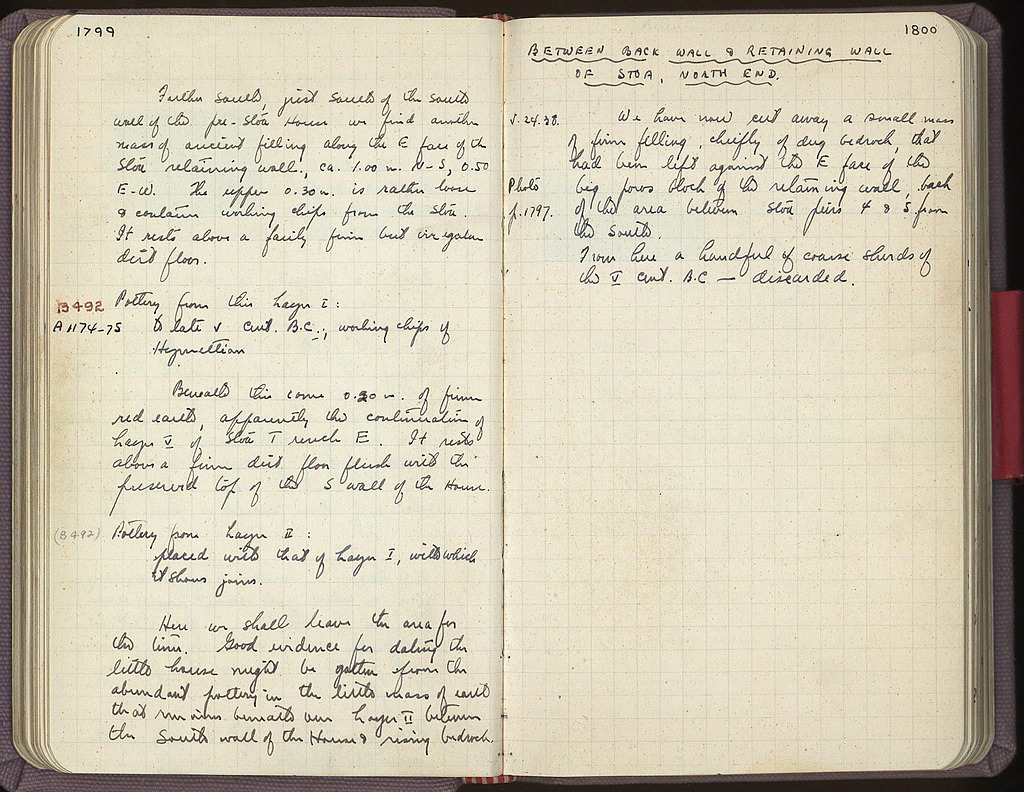 1799
Farther South, just South of the South
wall of the pre-Stoa House we find another
mass of ancient filling along the E face of the
Stoa retaining wall, ca. 1.00 m. N-S, 0.50
E-W. The upper 0.30 m. is rather loose
& contains working chips from the Stoa.
It rests above a fairly firm but irregular
dirt floor.
B 492 Pottery from this Layer I:
A 1174-75 to late V cent. B.C., working chips of
Hymettian
Beneath this come 0.30 m. of firm
red earth, apparently the continuation of
Layer V of Stoa Trench E. It rests
above a firm dirt floor flush with the
preserved top of the S wall of the House.
(B 492) Pottery from Layer II:
placed with that of Layer I, with which
it shows joins.
Here we shall leave the area for
the time. Good evidence for dating the
little house might be gotten from the
abundant pottery in the little mass of earth
that remains beneath our Layer II between
the South wall of the House & rising bedrock.
1800
BETWEEN BACK WALL & RETAINING WALL
OF STOA, NORTH END.
V.24.38. We have now cut away a small mass
of firm filling, chiefly of dug bedrock, that
had been left against the E face of the
Photo big poros block of the retaining wall, back
p.1797. of the area between Stoa piers 4 & 5 from
the South.
From here a handful of coarse sherds of
the V cent. B.C — discarded.